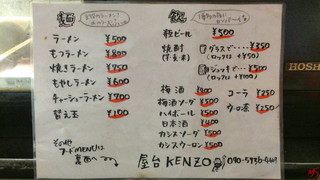 麺
ラーメン ¥500
もつラーメン ¥800
焼きラーメン ¥750
もやしラーメン ¥600
チャーシューラーメン ¥700
替え玉 ¥100
その他
フードMENUは
裏面へ
飲
瓶ビール ¥500
焼酎 グラスで・・・¥350
(芋・麦) (ロックは +¥100)
ジョッキで・・・¥500
(ロックは +¥100)
梅酒 ¥400
梅酒ソーダ ¥500
ハイボール ¥500
日本酒 ¥400
カシスソーダ ¥500
カシスウーロン ¥500
コーラ ¥250
ウーロン茶 ¥250
屋台 KENZO
HOSH